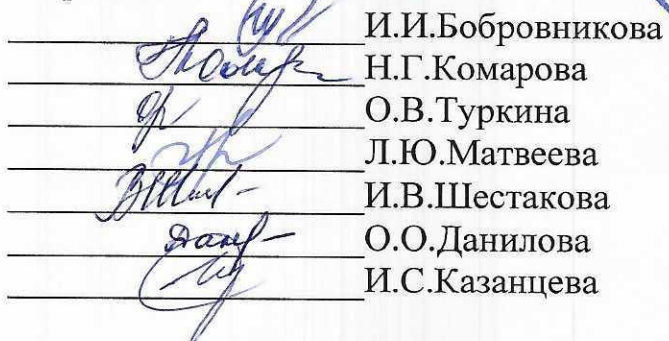 И.И.Бобровникова
Н.Г.Комарова
О.В.Туркина
Л.Ю.Матвеева
И.В.Шестакова
О.О.Данилова
И.С.Казанцева